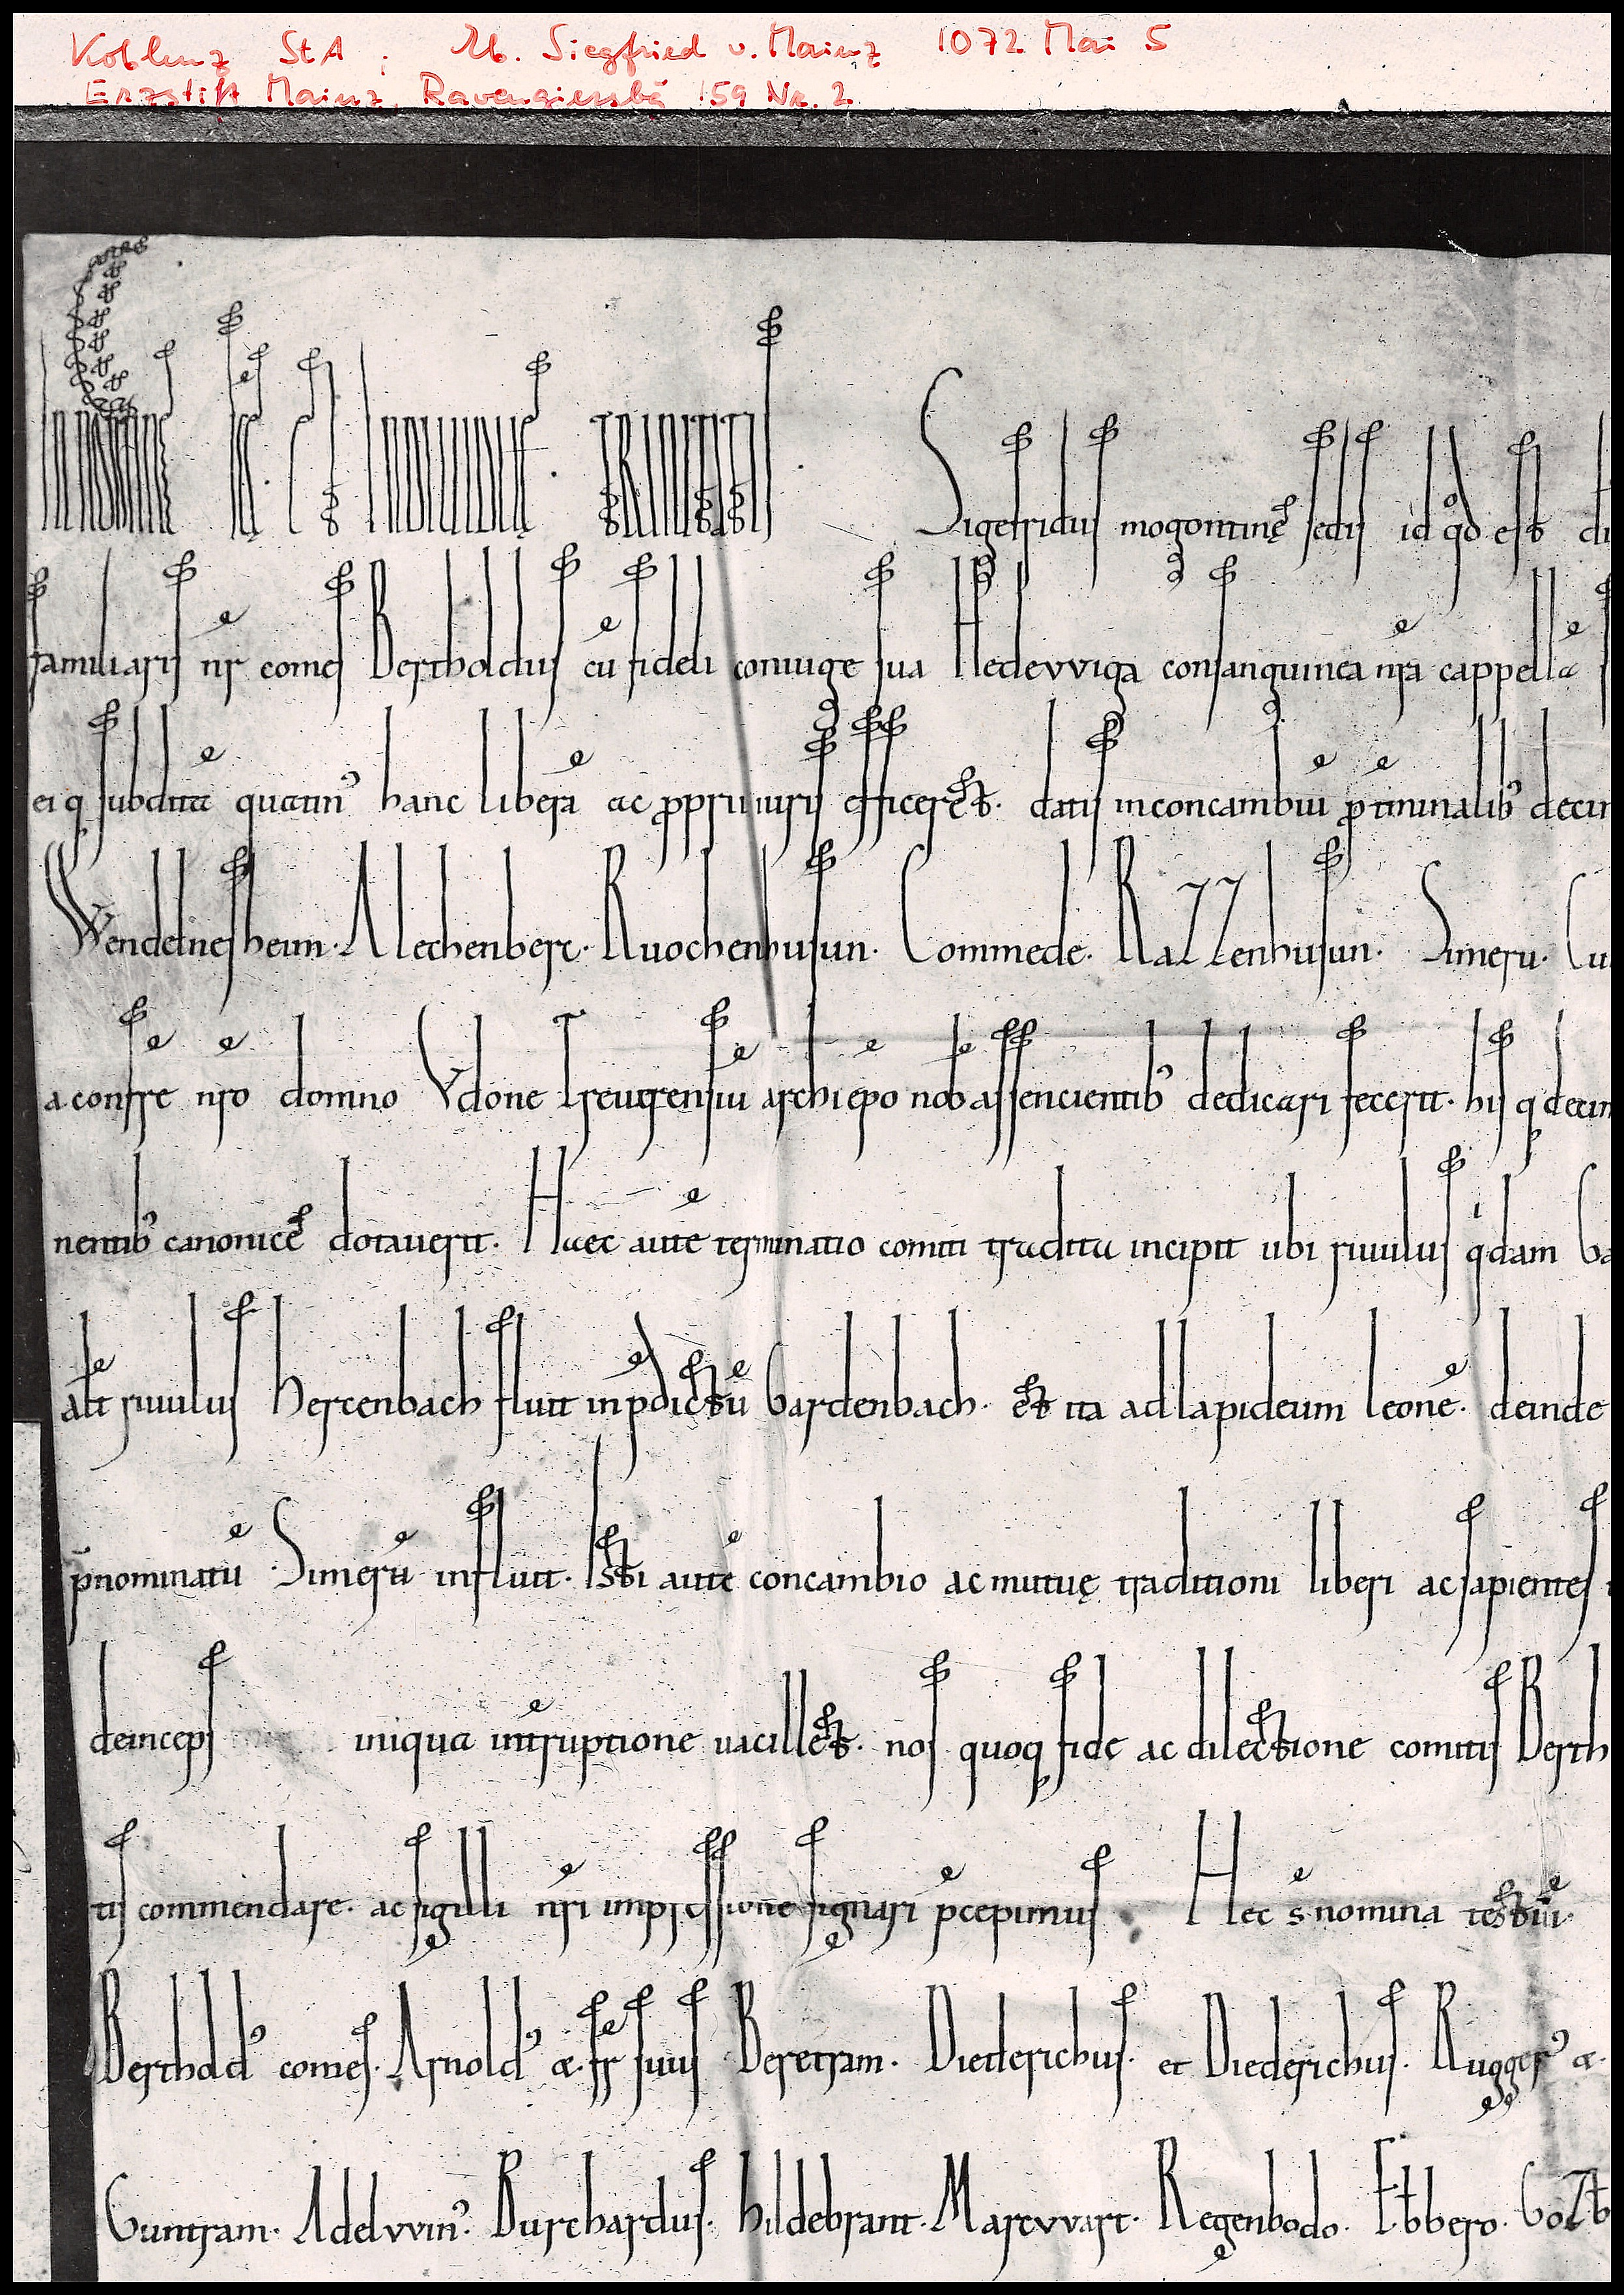 Koblenz StA; Eb. Siegfried v. Mainz 1072 Mai 5
Erzstift Mainz, Ravengiersbg 159 Nr. 2
IN NOMINE SCĘ ET INDIVIDUĘ · TRINITATIS · Sigefridus mogontinę sedis id qd est
familiaris nr̄ comes Bertholdus cū fideli coniuge sua Hedevviga consanguinea nr̄a cappellā
ei q subditā quatin᾽ hanc liberā ac ꝓprii iuris efficeret. datis inconcambiū ꝓ tminalib᾽
Wendelnesheim. Mechenberc. Ruochenhusun. Commede. Razzenhusun. Simeru.
a confr̄e nr̄o domno Vdone Treuerensiū archiep̄o nob̄ assencientib᾽ dedicari fecerit. his q
nentib᾽ canonicę dotauerit. Haec autē terminatio comiti tradita incipit ubi riuulus qdam
alt̄ riuulus Hercenbach fluit in p̄dictū Gardenbach. et ita ad lapideum leonē. deinde
p̄nominatū Simerū influit. Isti autē concambio ac mutuę traditioni liberi ac sapientes
deinceps iniqua int̄ruptione uacillet. nos quoq fide ac dilectione comitis
tis commendare. ac sigilli nr̄i impressione signari p̄cepimus Hec s̄ nomina testiū.
Berthold᾽ comes. Arnold᾽ & fr̄ suus Beretram. Diederichus. et Diederichus. Rugger᾽ &
Guntram. Adelvvin᾽. Burchardus. Hildebrant. Marcvvart. Regenbodo. Ebbero.